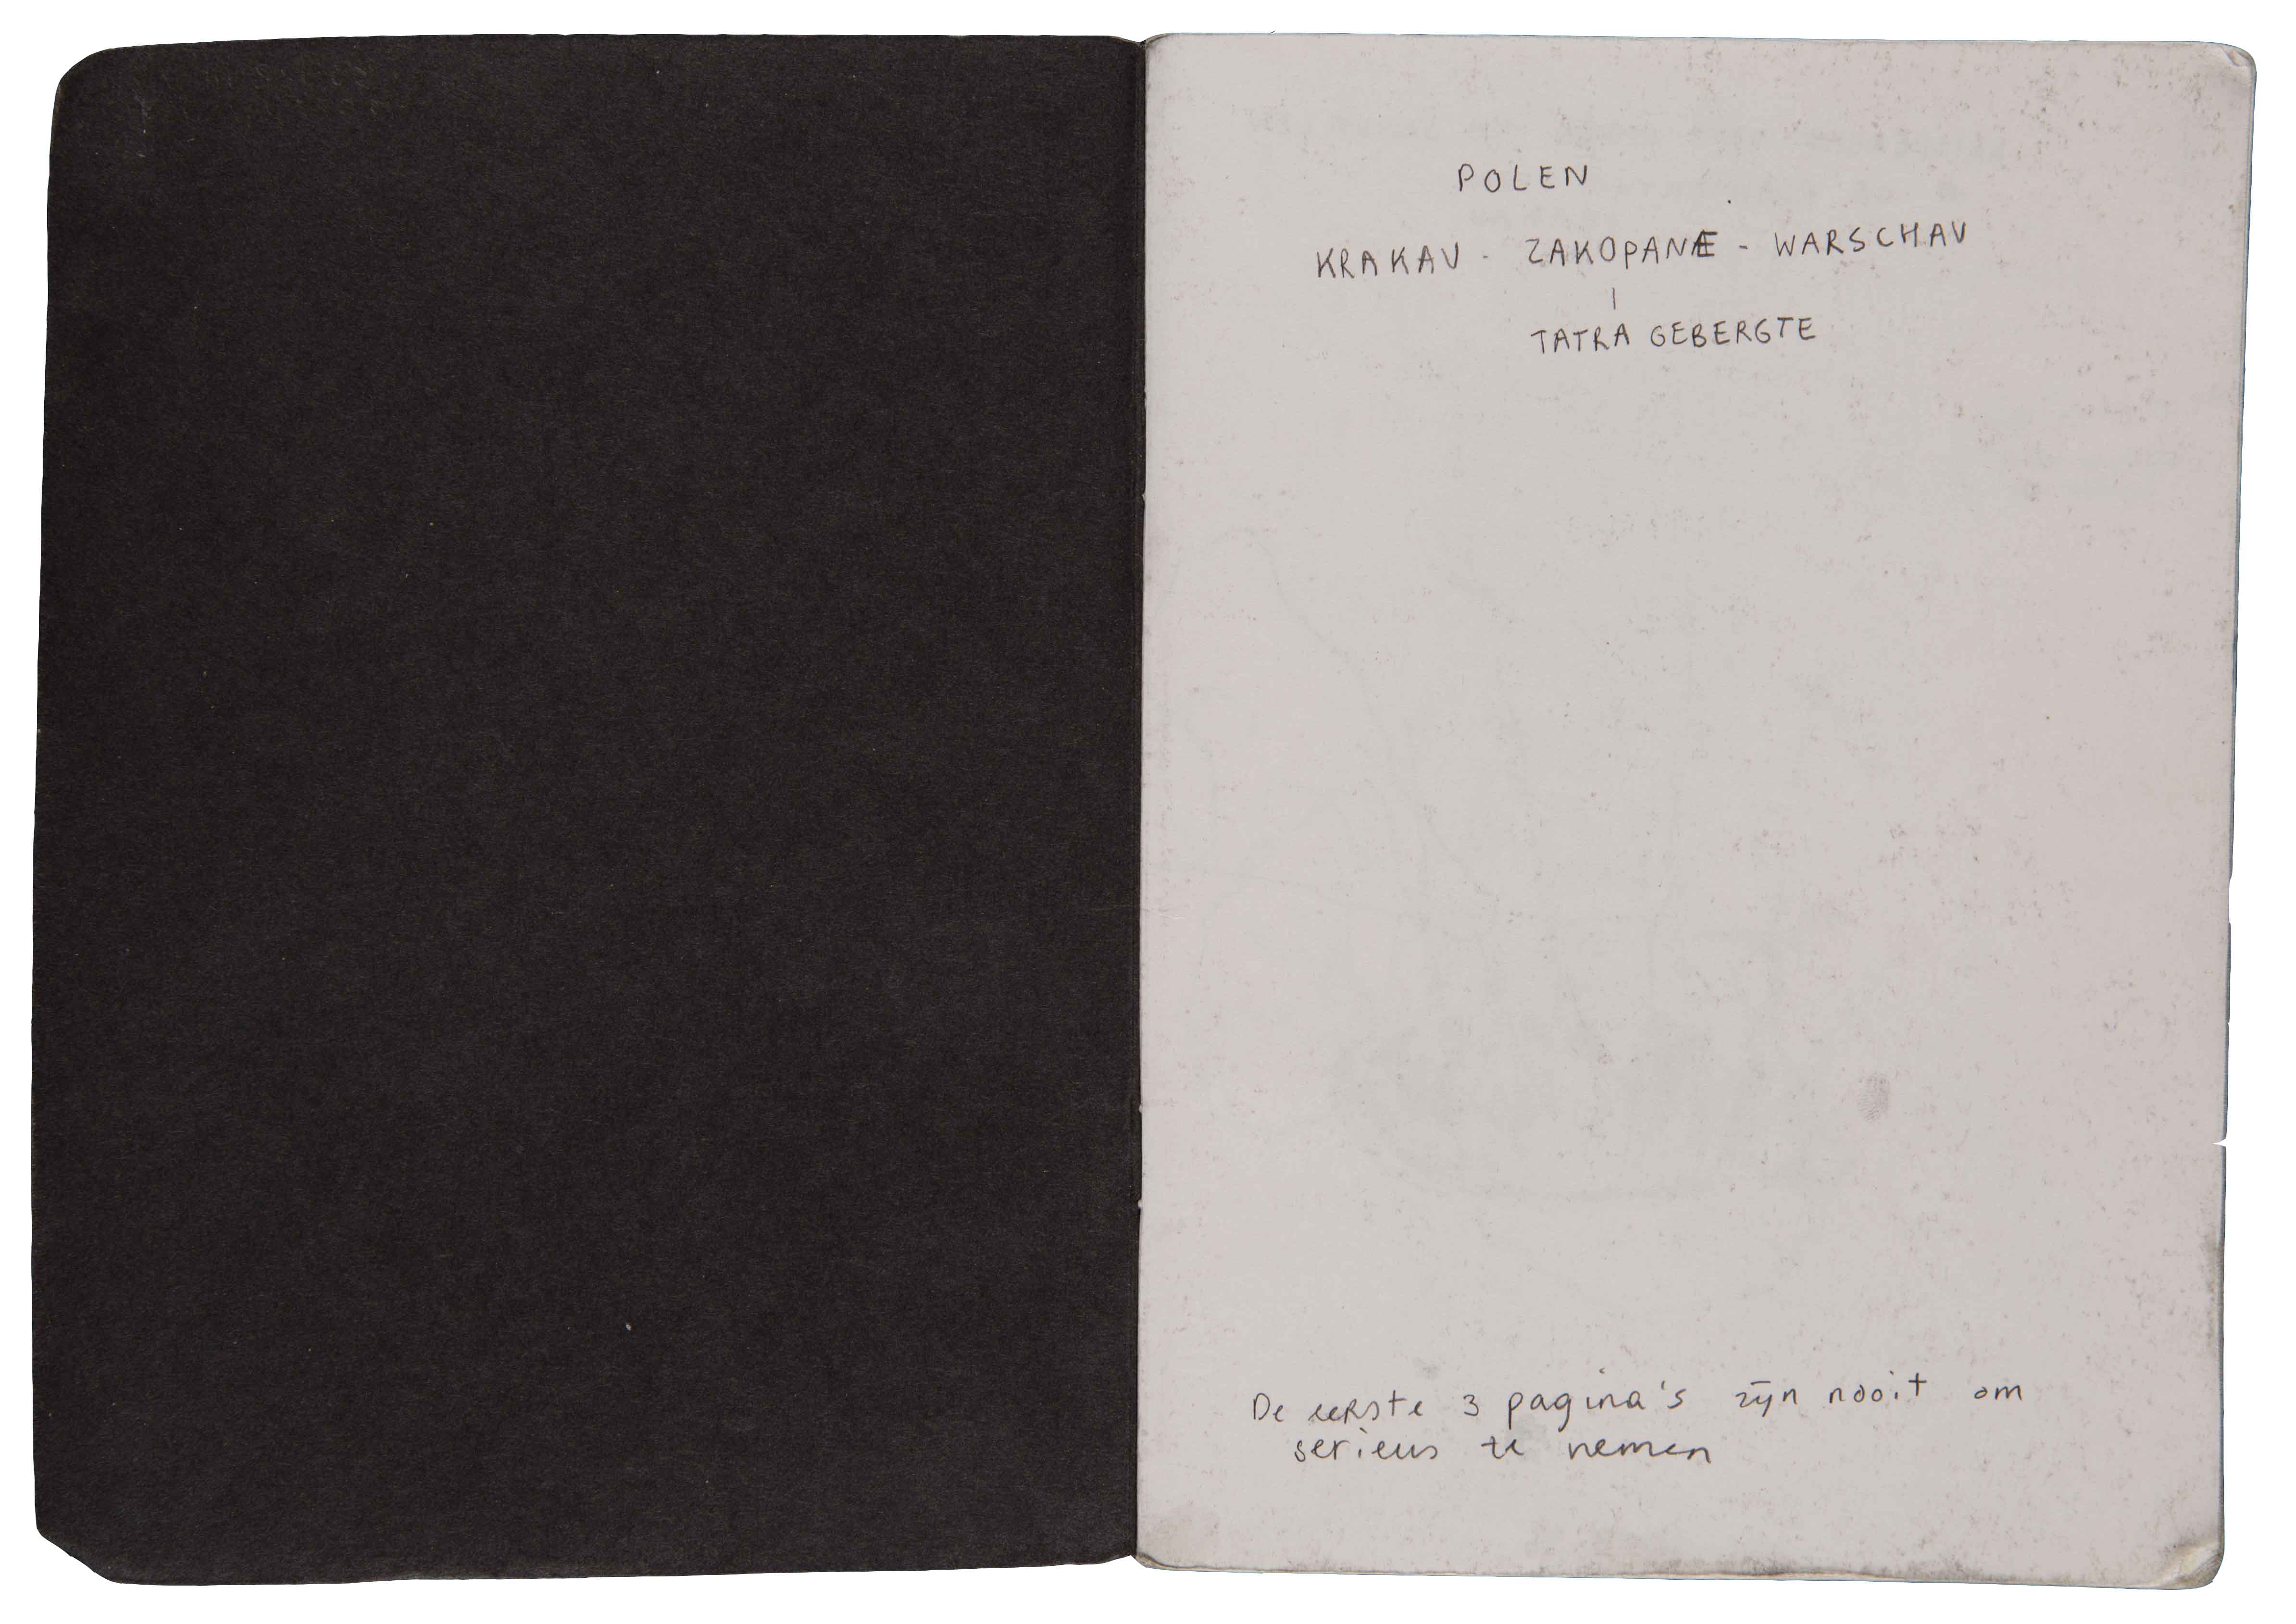 POLEN
KRAKAU - ZAKOPANE - WARSCHAU
|
TATRA GEBERGTE
De eerste 3 pagina's zijn nooit om
serieus te nemen